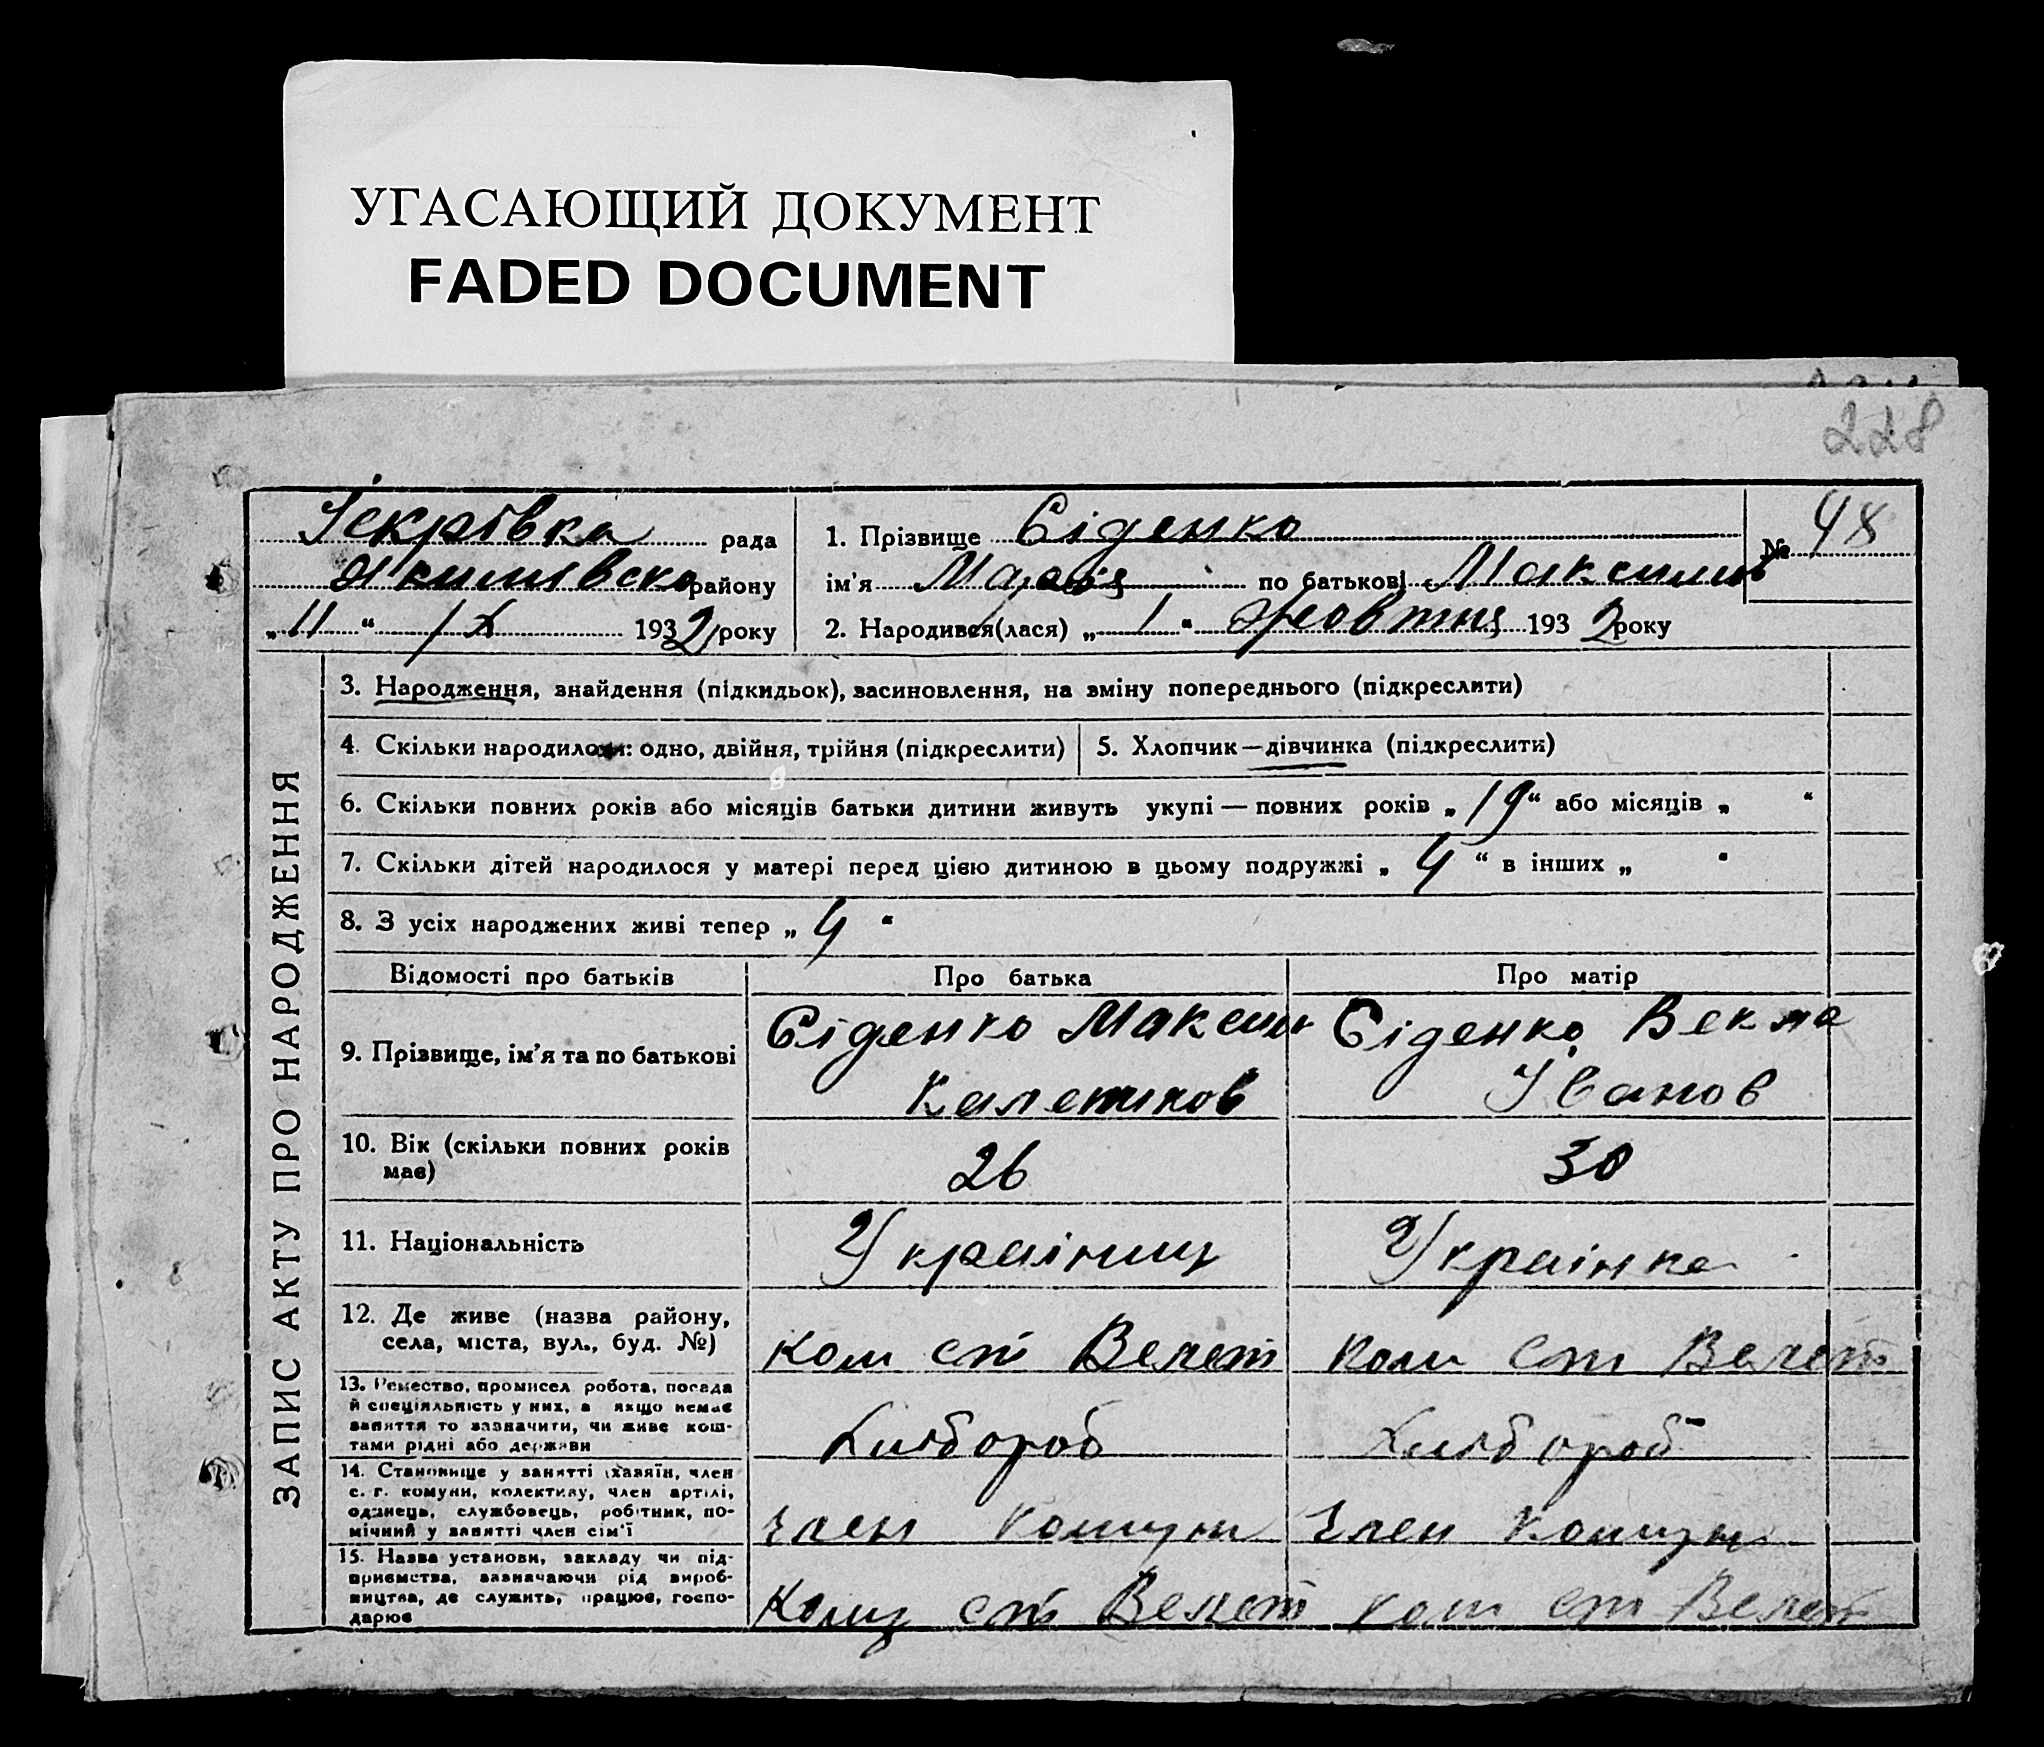 УГАСАЮЩИЙ ДОКУМЕНТ
FADED DOCUMENT
228
Іскрівка рада
району
„11“ ІХ 1932 року
1. Прізвище Сіденко
ім'я Марія по батькові Максимов
2. Народився(лася) „1“ жовтня 1932 року
№ 48
ЗАПИС АКТУ ПРО НАРОДЖЕННЯ
3. Народження, знайдення (підкидьок), засиновлення, на зміну попереднього (підкреслити)
4. Скільки народилося: одно, двійня, трійня (підкреслити)
5. Хлопчик—дівчинка (підкреслити)
6. Скільки повних років або місяців батьки дитини живуть укупі — повних років „19“ або місяців „ “
7. Скільки дітей народилося у матері перед цією дитиною в цьому подружжі „4“ в інших „ “
8. З усіх народжених живі тепер „4“
Відомості про батьків
Про батька
Про матір
9. Прізвище, ім'я та по батькові
Сіденко Максим
Сіденко
Іванов
10. Вік (скільки повних років
має)
26
30
11. Національність
Українець
Українка
12. Де живе (назва району,
села, міста, вул., буд. №)
ком ст Велет
ком ст Велет
13. Ремество, промисел робота, посада
й спеціяльність у них, а якщо немає
заняття то зазначити, чи живе кош-
тами рідні або держави
Хлібороб
Хлібороб
14. Становище у занятті (хазяїн, член
с. г. комуни, колективу, член артілі,
одинець, службовець, робітник, по-
мічний у занятті член сім'ї
член комуни
член комуни
15. Назва установи, закладу чи під-
приємства, зазначаючи рід вироб-
ництва, де служить, працює, госпо-
дарює
ст Велет
ком ст Велет